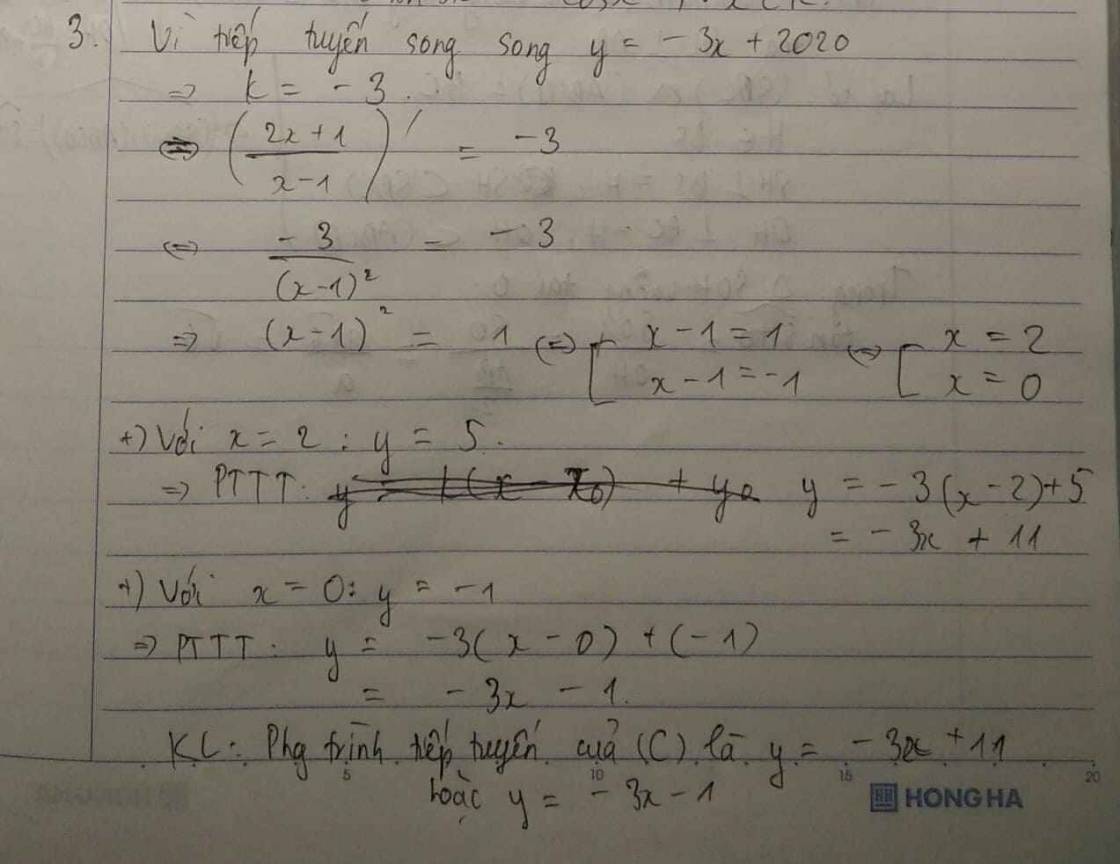 3. Vì tiếp tuyến song song y = -3x + 2020
⇒ k = -3.
⇔ (2x+1 / x-1)' = -3
⇔ -3 / (x-1)² = -3
⇒ (x-1)² = 1 ⇔ [ x-1=1 ⇔ [ x = 2
x-1=-1 x = 0
+) Với x = 2 : y = 5.
⇒ PTTT: y = -3(x-2)+5
= -3x + 11
+) Với x = 0: y = -1
⇒ PTTT: y = -3(x-0)+(-1)
= -3x - 1.
KL: Phg trình tiếp tuyến cuả (C) là y = -3x+11
5 10 15 20
hoặc y = -3x-1
HONG HA